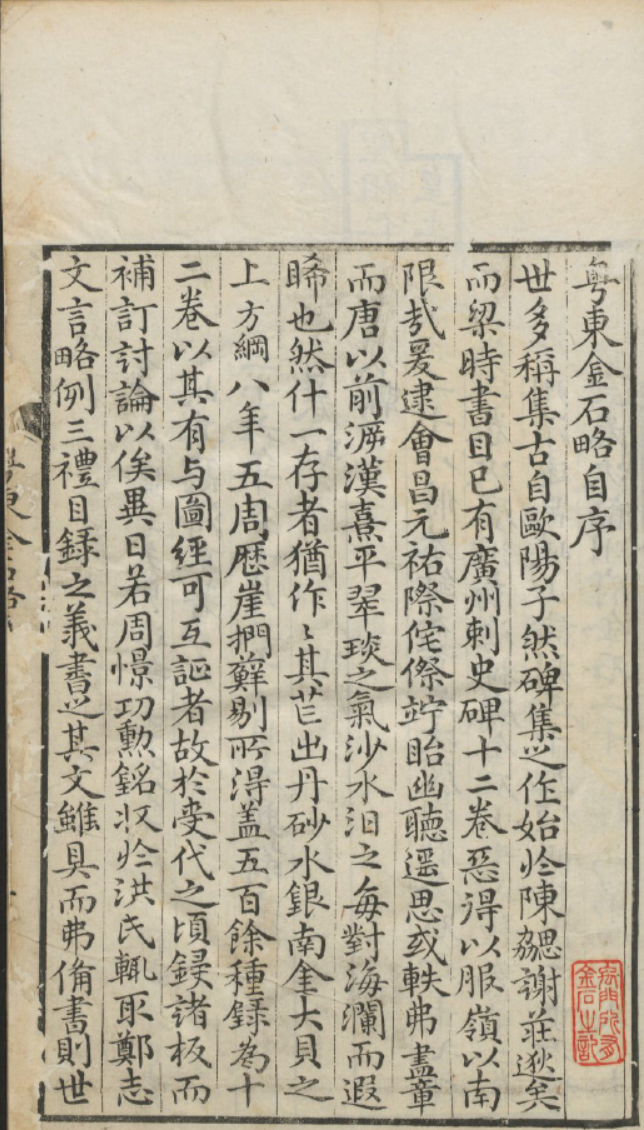 粤東金石略自序
世多稱集古自歐陽子然碑集之作始於陳勰謝莊逖矣
而梁時書目已有廣州刺史碑十二卷惡得以服嶺以南
限哉爰逮會昌元祐際侘傺竚眙幽聽遥思或軼弗盡章
而唐以前泝漢熹平翠琰之氣沙水汩之每對海瀾而遐
睎也然什一存者猶作作其芒出丹砂水銀南金大貝之
上方綱八年五周厯崖捫蘚剔所得盖五百餘種録為十
二卷以其有与圖經可互証者故於受代之頃録諸板而
補訂討論以俟異日若周憬功勲銘収於洪氏輒取鄭志
文言略例三禮目録之義書之其文雖具而弗備書則世
粤東金石略